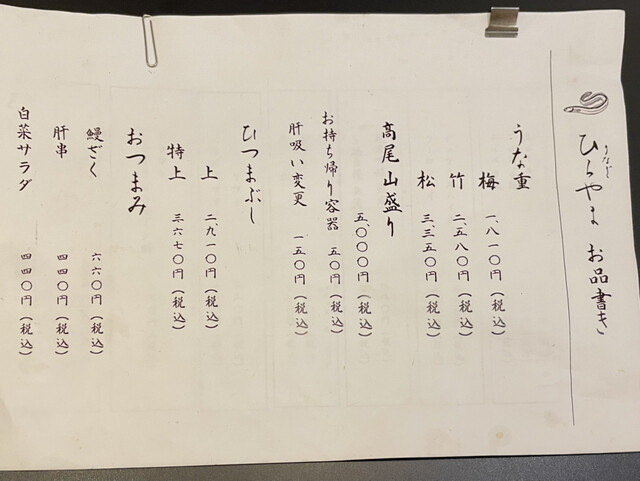 うなぎ
ひらやま お品書き
うな重
梅 一、八一〇円(税込)
竹 二、五八〇円(税込)
松 三、三五〇円(税込)
高尾山盛り
五、〇〇〇円(税込)
お持ち帰り容器 五〇円(税込)
肝吸い変更 一五〇円(税込)
ひつまぶし
上 二、九一〇円(税込)
特上 三、六七〇円(税込)
おつまみ
鰻ざく 六六〇円(税込)
肝串 四四〇円(税込)
白菜サラダ 四四〇円(税込)